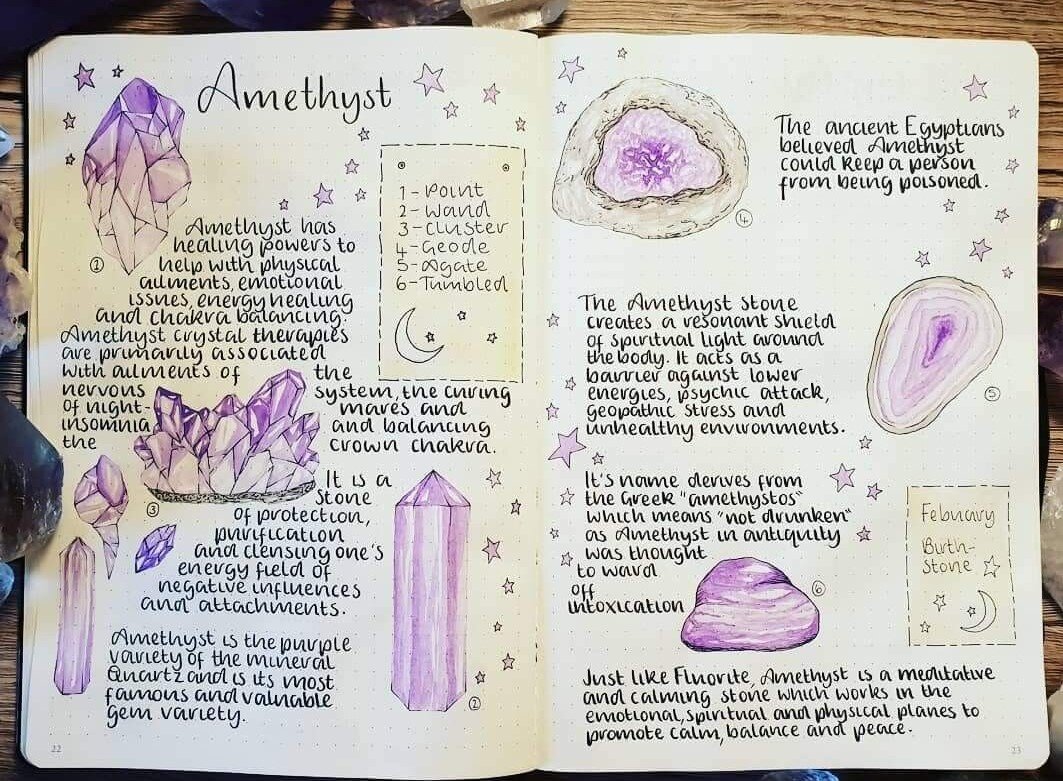 Amethyst
1
Amethyst has
healing powers to
help with physical
ailments, emotional
issues, energy healing
and chakra balancing.
Amethyst crystal therapies
are primarily associated
with ailments of the
nervous system, the curing
of night- mares and
insomnia and balancing
the crown chakra.
1 - Point
2 - Wand
3 - Cluster
4 - Geode
5 - Agate
6 - Tumbled
3
It is a
stone
of protection,
purification
and clensing one's
energy field of
negative influences
and attachments.
Amethyst is the purple
variety of the mineral
Quartz and is its most
famous and valuable
gem variety.
2
22
4
The ancient Egyptians
believed Amethyst
could keep a person
from being poisoned.
The Amethyst stone
creates a resonant shield
of spiritual light around
the body. It acts as a
barrier against lower
energies, psychic attack,
geopathic stress and
unhealthy environments.
5
It's name derives from
the Greek "amethystos"
which means "not drunken"
as Amethyst in antiquity
was thought
to ward
off
intoxication
6
Febuary
Birth-
Stone
Just like Fluorite, Amethyst is a meditative
and calming stone which works in the
emotional, spiritual and physical planes to
promote calm, balance and peace.
23